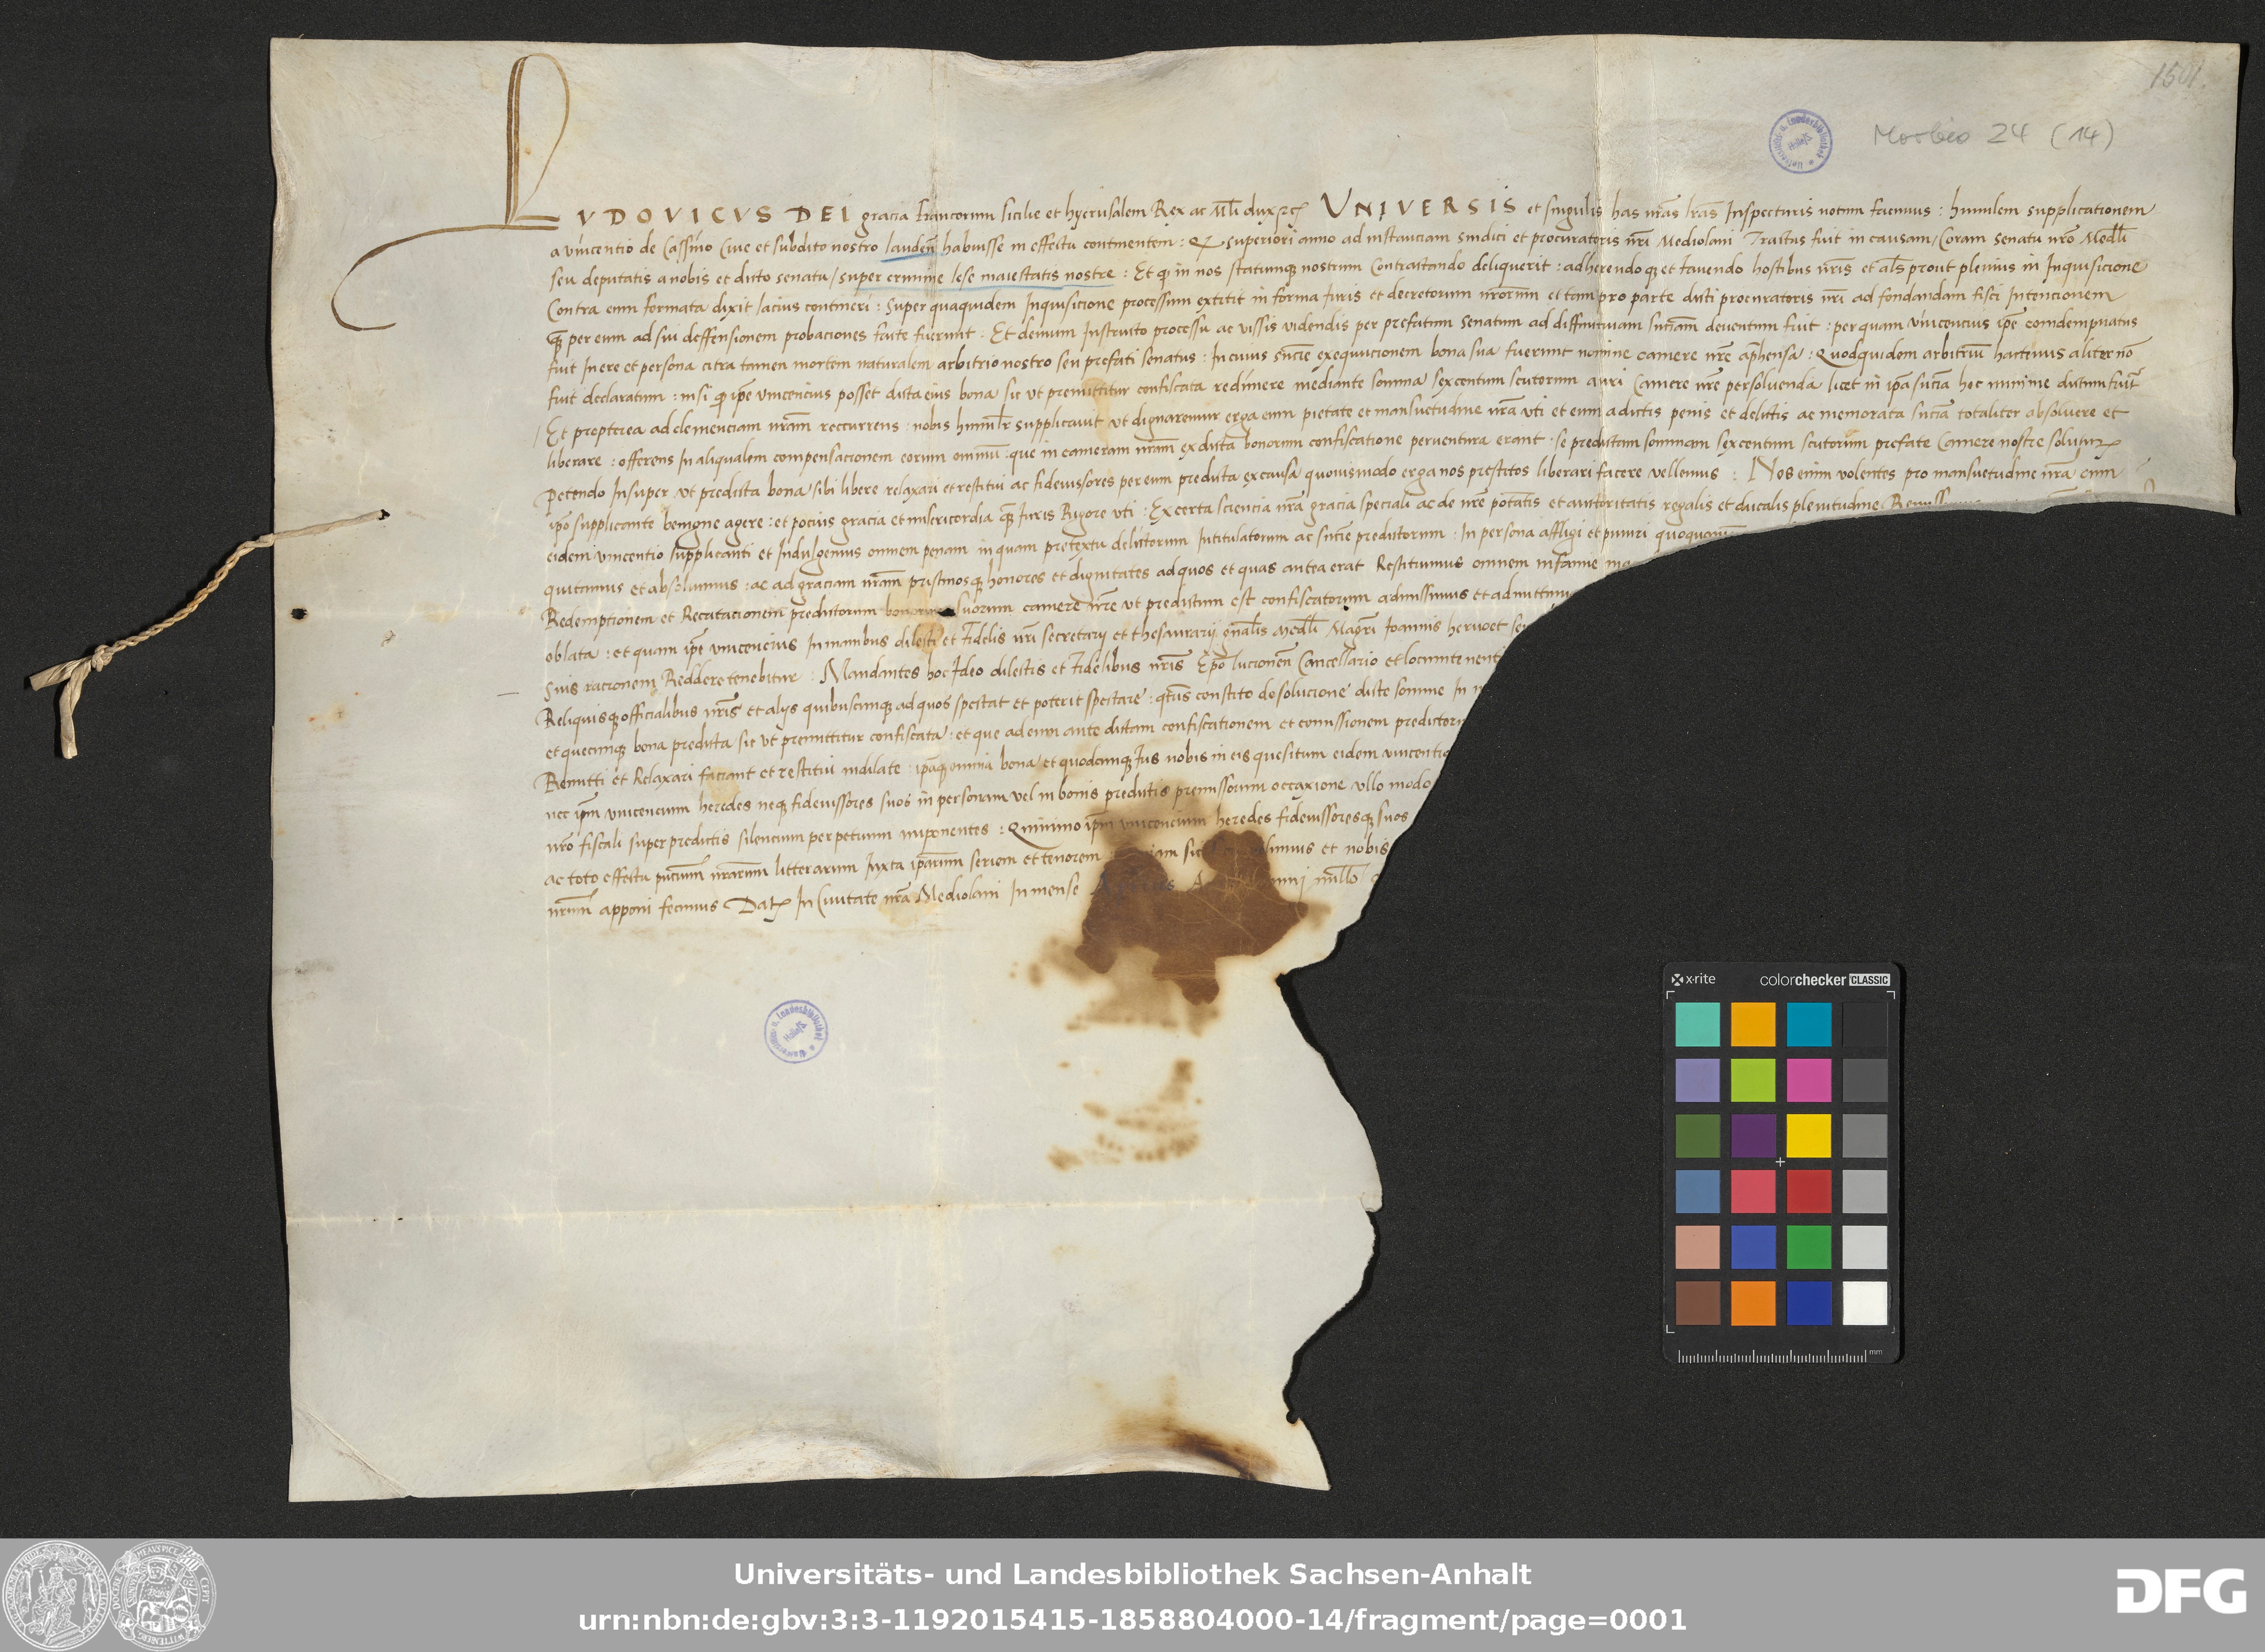 1501.
Morbio 24 (14)
LVDOVICVS DEI gracia francorum sicilie et hyerusalem Rex ac Mlı̄ dux ⁊c̃ VNIVERSIS et singulis has nr̃as lr̃as Inspecturis notum facimus : humilem supplicationem
a vincentio de Cassino Ciue et subdito nostro lauden̄ habuisse in effectu continentem : Q superiori anno ad instanciam sindici et procuratoris nr̃i Mediolani Tractus fuit in causam / Coram senatu nr̃o Medlı̄
seu deputatis a nobis et dicto senatu / super crimine lese maiestatis nostre : Et qᵈ in nos statumqȝ nostrum Contractando deliquerit : adherendoqȝ et fauendo hostibus nr̃is et als̄ prout plenius in Inquisicione
Contra eum formata dixit lacius contineri : super quaquidem Inquisicione processum extitit in forma Iuris et decretorum nr̃orum et tam pro parte dicti procuratoris nr̃i ad fondandam fisci Intencionem
qȝ per eum ad sui deffensionem probaciones facte fuerunt . Et demum Instructo processu ac vissis videndis per prefatum senatum ad diffinitiuam snīam deuentum fuit : per quam vincencius ip̄e comdempnatus
fuit In ere et persona citra tamen mortem naturalem arbitrio nostro seu prefati senatus : In cuius snc̄ie exequucionem bona sua fuerunt nomine camere nr̃e ap̄hensa : Quodquidem arbitriū hactenus aliter nō
fuit declaratum : nisi qᵈ ip̄e vincencius posset dicta eius bona sic vt premittitur confiscata redimere mediante somma sexcentum scutorum auri Camere nr̃e persoluenda licet in ip̄a snc̄ia hoc minime dictum fuit
Et propterea ad clemenciam nr̃am reccurrens nobis humilr̄ supplicauit vt dignaremur erga eum pietate et mansuetudine nr̃a vti et eum a dictis penis et delictis ac memorata snc̄ia totaliter absoluere et
liberare : offerens In aliqualem compensacionem eorum omniū : que in cameram nr̃am ex dicta bonorum confiscatione peruentura erant . se predictam sommam sexcentum scutorum prefate Camere nostre solutuꝝ
petendo Insuper vt predicta bona sibi libere relaxari et restitui ac fideiussores per eum predicta ex causa quouismodo erga nos prestitos liberari facere vellemus : Nos enim volentes pro mansuetudine nr̃a cum
ip̄o supplicante benigne agere : et pocius gracia et misericordia qȝ Iuris Rigore vti : Ex certa sciencia nr̃a gracia speciali ac de nr̃e potātis et auctoritatis regalis et ducalis plenitudine
eidem vincentio supplicanti et Indulgemus omnem penam in quam pretextu delictorum Intitulatorum ac snc̄ie predictorum . In persona affligi et puniri
quitamus et absoluimus : ac ad graciam nr̃am pristinosqȝ honores et dignitates ad quos et quas antea erat Restituimus omnem infamie
Redemptionem et Recatacionem predictorum bonorum suorum camere nr̃e vt predictum est confiscatorum admissimus et
oblata : et quam ip̄e vincencius In manibus dilecti et Fidelis nr̃i secretarij et thesaurarij gnālis Medlı̄ Magr̃i Ioannis heruoet
suis racionem Reddere tenebitur . Mandantes hoc Ideo dilectis et Fidelibus nr̃is Ep̄o lucionen̄ Cancellario et
Reliquisqȝ officialibus nr̃is et alijs quibuscumqȝ ad quos spectat et poterit spectare : qtūs constito de solucione dicte somme In
et quecumqȝ bona predicta sic vt premittitur confiscata : et que ad eum ante dictam confiscationem et comissionem
Remitti et Relaxari faciant et restitui indilate : ip̄aqȝ omnia bona et quodcumqȝ Ius nobis in eis quesitum eidem
nec ip̄m vincencium heredes neqȝ fideiussores suos in personam vel in bonis predictis premissorum occaxione vllo modo
nr̃o fiscali super predictis silencium perpetuum imponentes : Quinimo ip̄m vincencium heredes fideiussoresqȝ suos
ac toto effectu pn̄cium nr̃arum litterarum Iuxta ip̄arum seriem et tenorem et nobis
nr̃um apponi fecimus Datꝭ In Ciuitate nr̃a Mediolani In mense
Universitäts- u. Landesbibliothek Halle/S.
Universitäts- u. Landesbibliothek Halle/S.
x-rite colorchecker CLASSIC
mm
Universitäts- und Landesbibliothek Sachsen-Anhalt
urn:nbn:de:gbv:3:3-1192015415-1858804000-14/fragment/page=0001
DFG